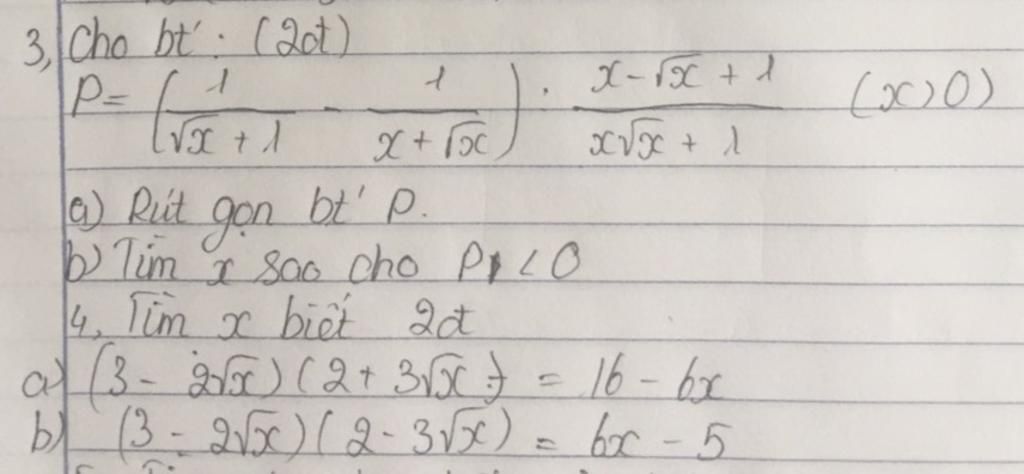 3, Cho bt': (2đ)
P = (1/(√x + 1) - 1/(x + √x)) : (x - √x + 1)/(x√x + 1) (x > 0)
a) Rút gọn bt' P.
b) Tìm x sao cho P < 0
4, Tìm x biết 2đ
a) (3 - 2√x)(2 + 3√x) = 16 - 6x
b) (3 - 2√x)(2 - 3√x) = 6x - 5